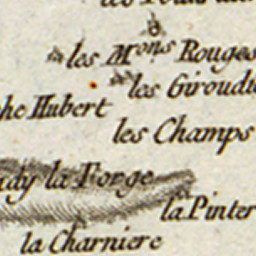 les M.ons Rouges
les Giroud
he Hubert
les Champs
dy la Forge
la Pinter
la Charniere